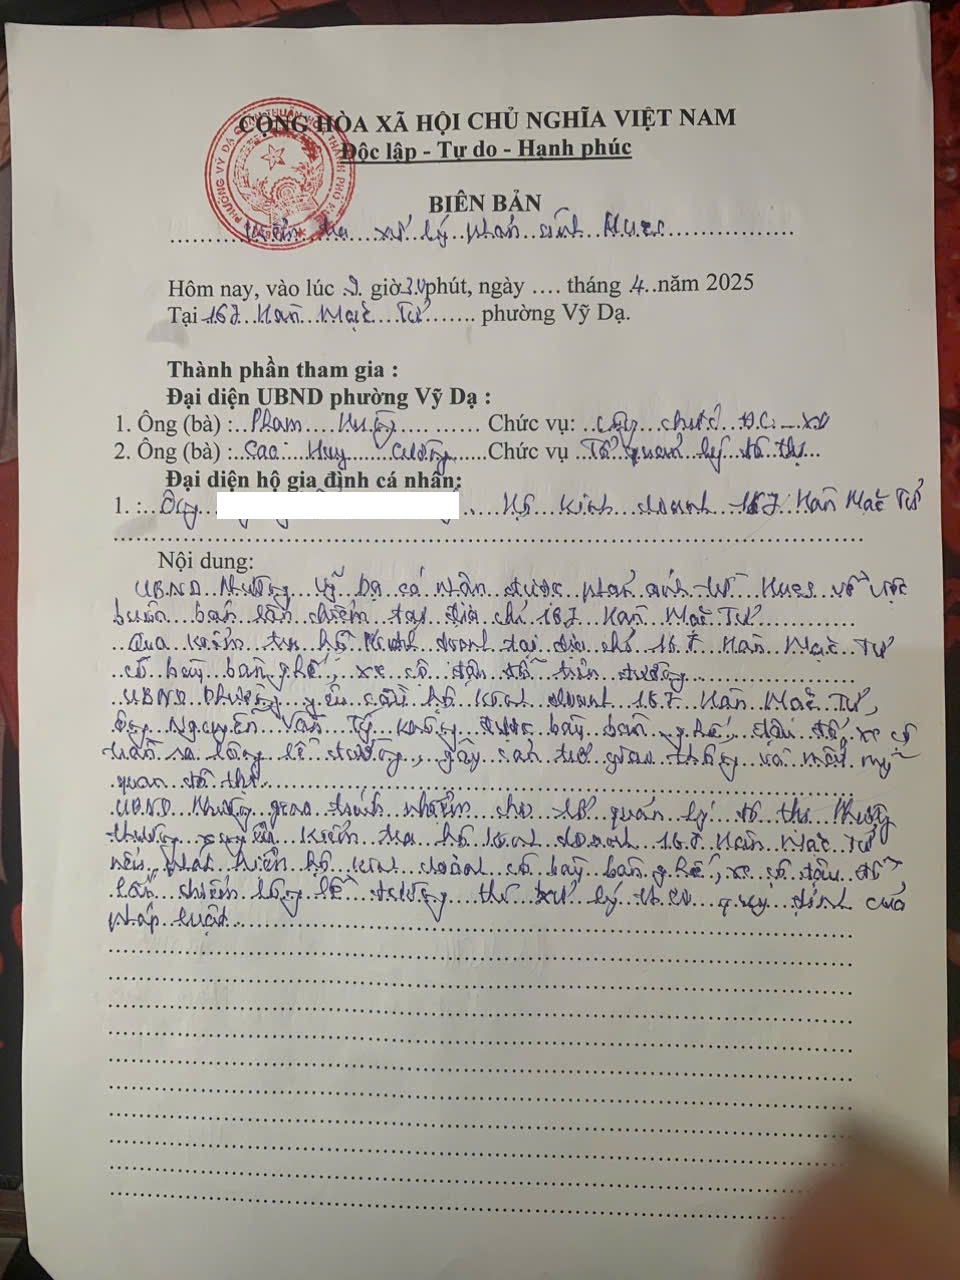 CỘNG HÒA XÃ HỘI CHỦ NGHĨA VIỆT NAM
Độc lập - Tự do - Hạnh phúc
BIÊN BẢN
Kiểm tra xử lý phản ánh Hues
Hôm nay, vào lúc 9 giờ 30 phút, ngày .... tháng 4 năm 2025
Tại 167 Hàn Mặc Tử phường Vỹ Dạ.
Thành phần tham gia :
Đại diện UBND phường Vỹ Dạ :
1. Ông (bà) : Phạm Hưng Chức vụ: Công chức Đ.C - XD
2. Ông (bà) : Cao Huy Cường Chức vụ Tổ quản lý đô thị
Đại diện hộ gia định cá nhân:
1. : Ông Hộ kinh doanh 167 Hàn Mặc Tử
Nội dung:
UBND Phường Vỹ Dạ có nhận được phản ánh từ Hues về việc
buôn bán lấn chiếm tại địa chỉ 167 Hàn Mặc Tử
Qua kiểm tra hộ kinh doanh tại địa chỉ 167 Hàn Mặc Tử
có bày bàn ghế, xe cộ đậu đỗ trên đường
UBND Phường yêu cầu hộ kinh doanh 167 Hàn Mặc Tử,
ông Nguyễn Văn Tý không được bày bàn ghế, đậu đỗ xe cộ
tràn ra lòng lề đường, gây cản trở giao thông và mất mỹ
quan đô thị.
UBND Phường giao trách nhiệm cho tổ quản lý đô thị Phường
thường xuyên kiểm tra hộ kinh doanh 167 Hàn Mặc Tử
nếu phát hiện hộ kinh doanh có bày bàn ghế, xe cộ đậu đỗ
lấn chiếm lòng lề đường thì xử lý theo quy định của
pháp luật.